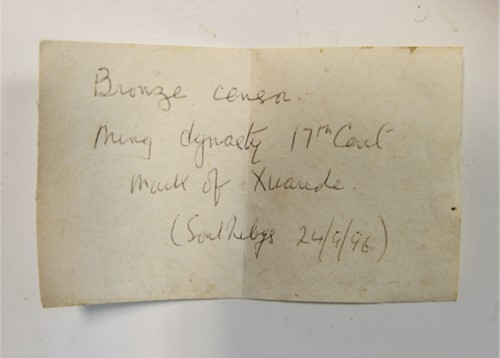 Bronze censor.
Ming dynasty 17th Cent
Mark of Xuande.
(Southebys 24/9/96)